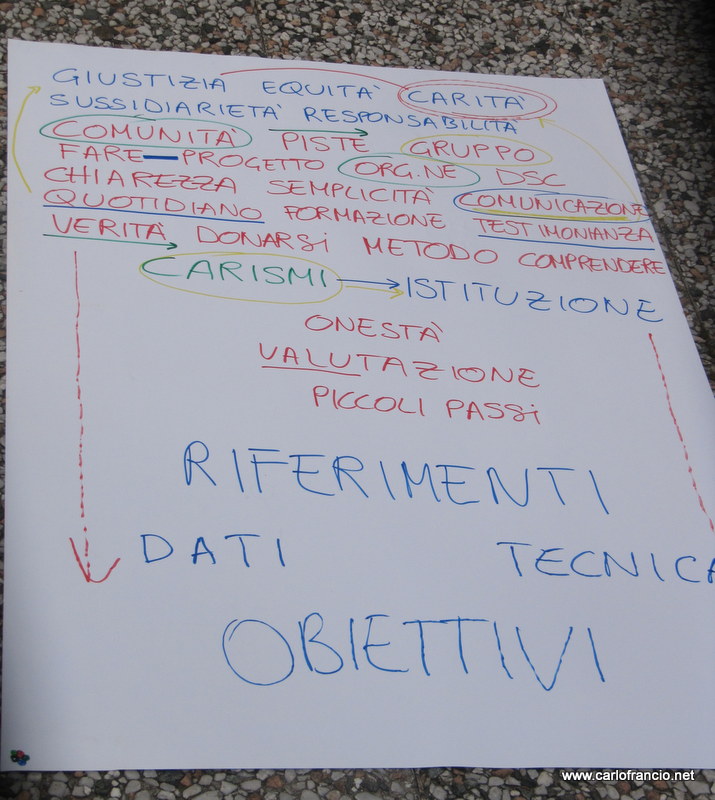 GIUSTIZIA EQUITÀ CARITÀ
SUSSIDIARIETÀ RESPONSABILITÀ
COMUNITÀ PISTE GRUPPO
FARE-PROGETTO ORG.NE DSC
CHIAREZZA SEMPLICITÀ COMUNICAZIONE
QUOTIDIANO FORMAZIONE TESTIMONIANZA
VERITÀ DONARSI METODO COMPRENDERE
CARISMI ISTITUZIONE
ONESTÀ
VALUTAZIONE
PICCOLI PASSI
RIFERIMENTI
DATI TECNICA
OBIETTIVI
www.carlofrancio.net